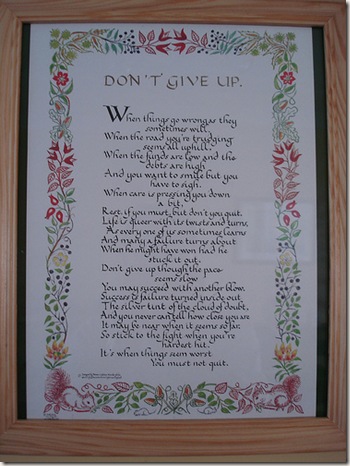 DON'T GIVE UP.
When things go wrong as they
sometimes will,
When the road you're trudging
seems all uphill,
When the funds are low and the
debts are high
And you want to smile but you
have to sigh.
When care is pressing you down
a bit,
Rest, if you must, but don't you quit.
Life is queer with its twists and turns,
As every one of us sometimes learns
And many a failure turns about
When he might have won had he
stuck it out.
Don't give up though the pace
seems slow
You may succeed with another blow.
Success is failure turned inside out
The silver tint of the cloud of doubt,
And you never can tell how close you are
It may be near when it seems so far.
So stick to the fight when you're
hardest hit.
It's when things seem worst
You must not quit.